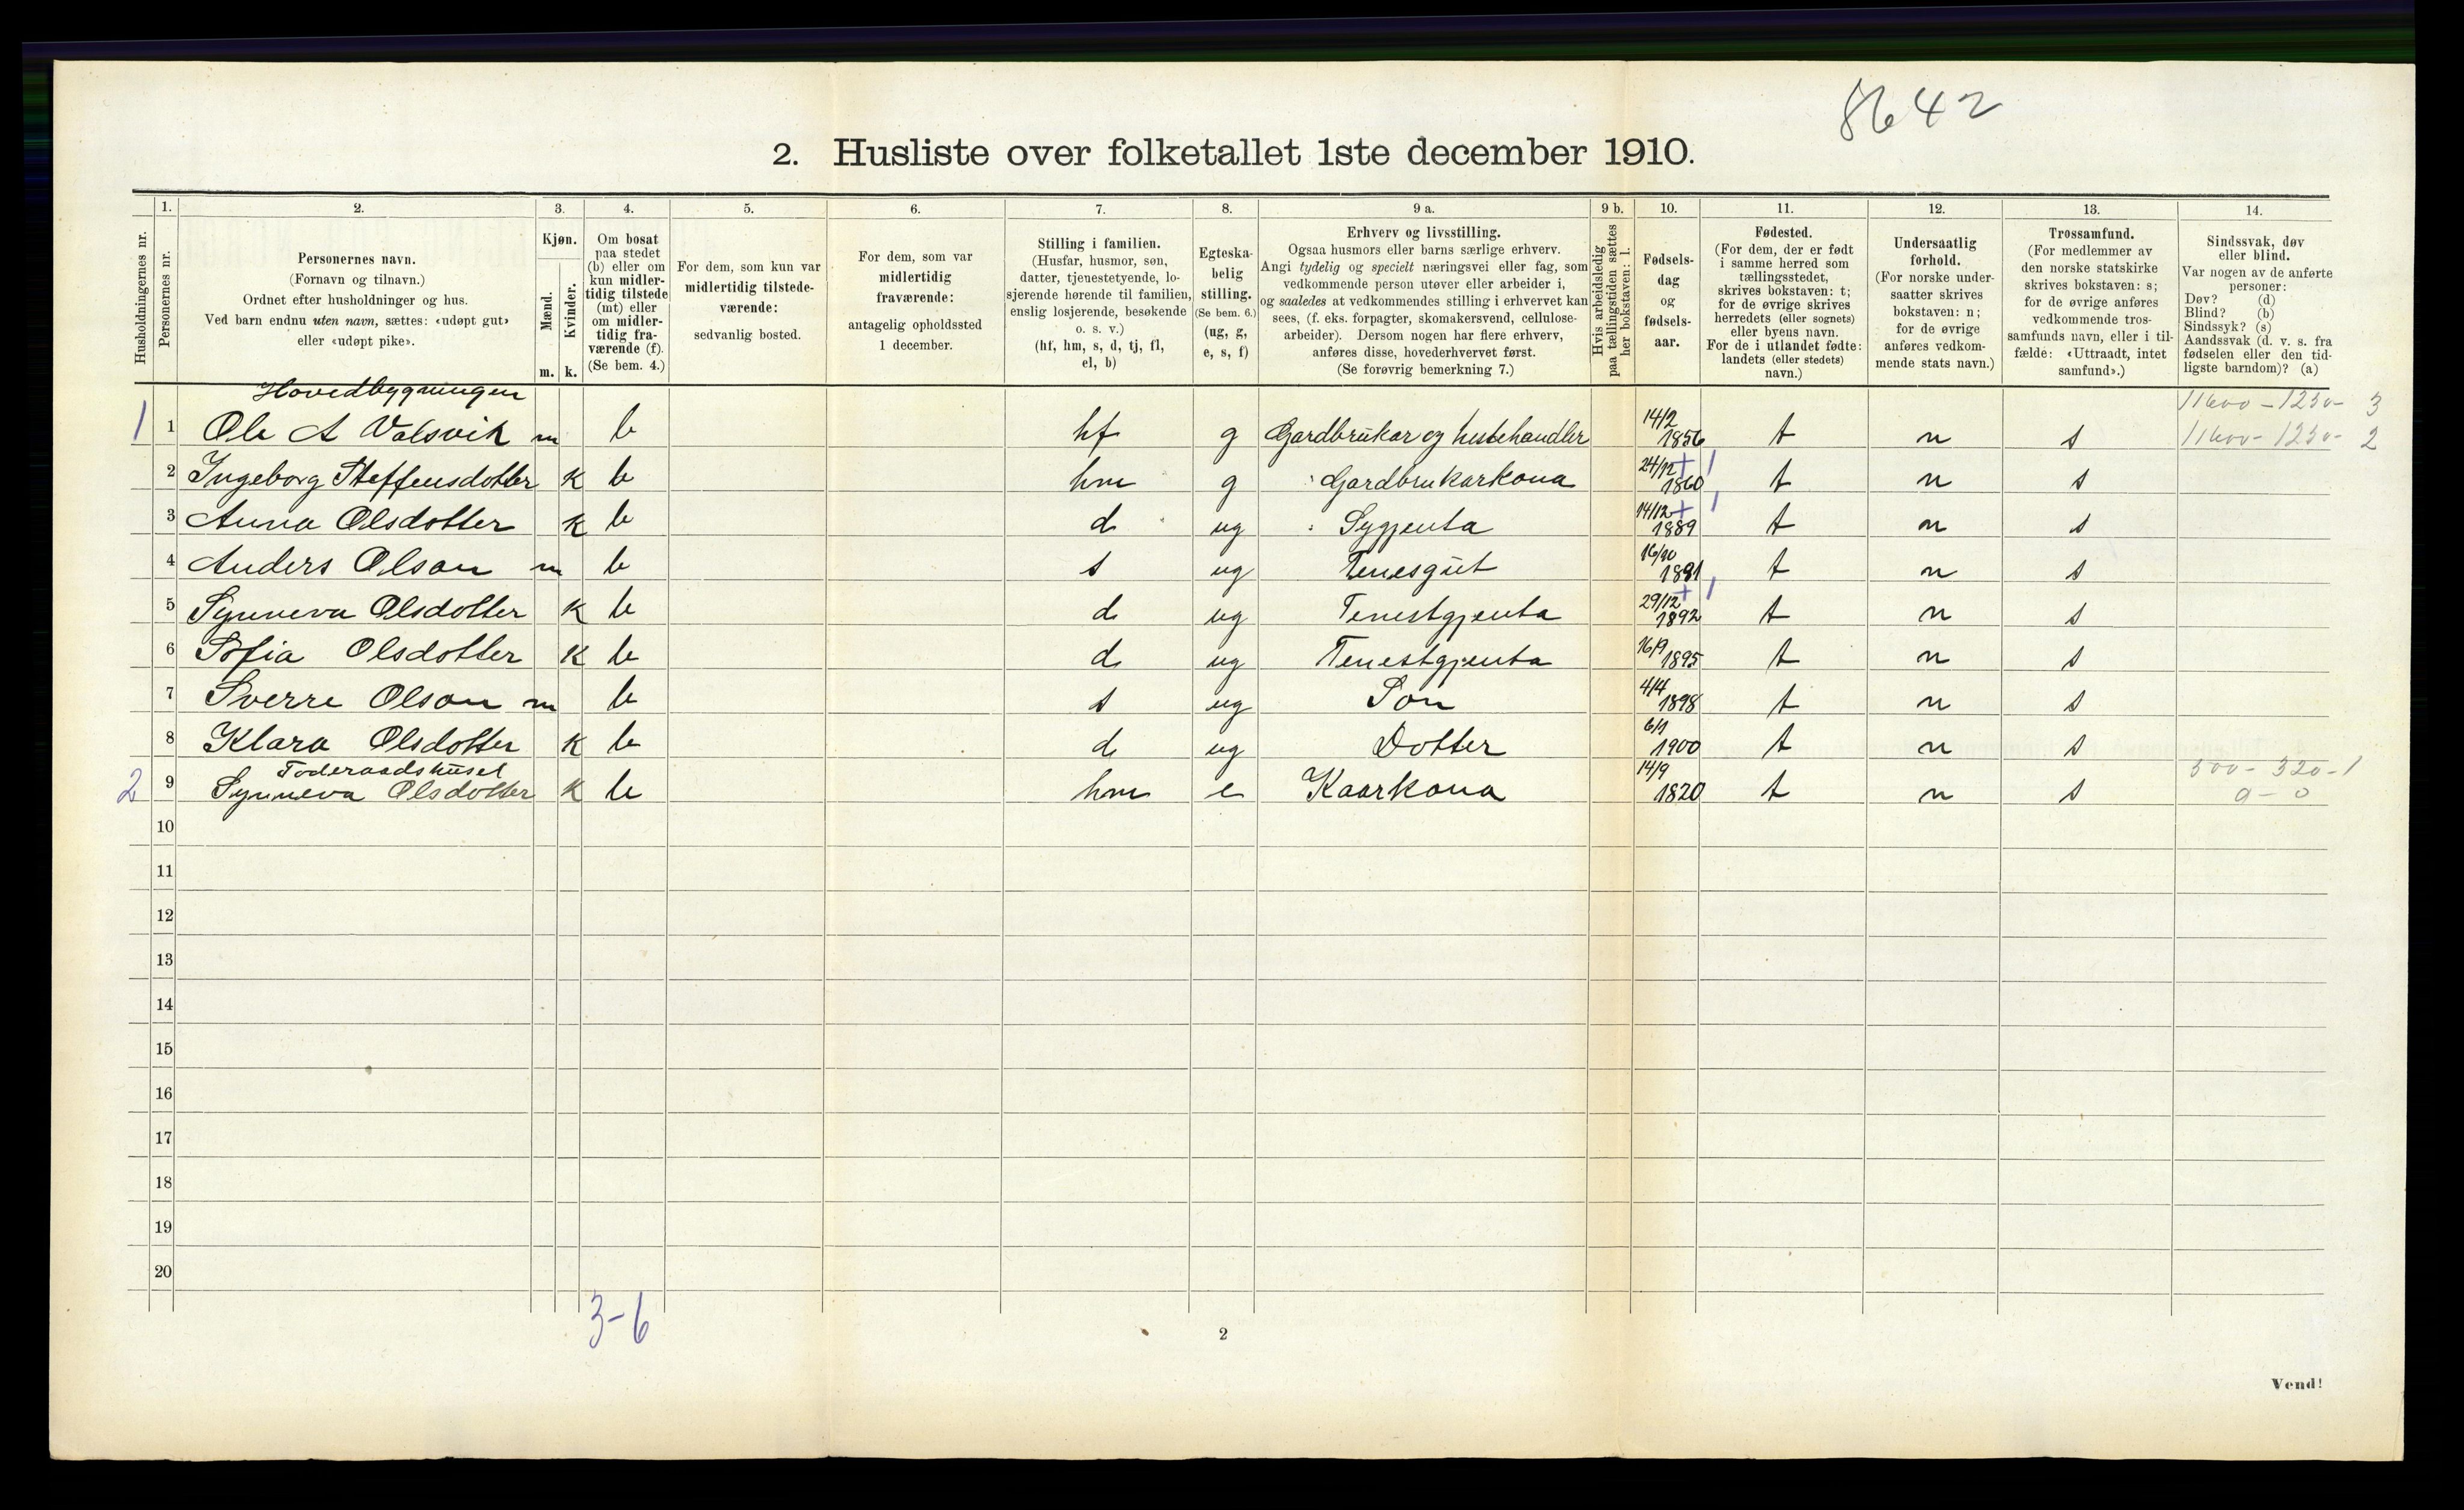 8642
2. Husliste over folketallet 1ste december 1910.
1. 2. 3. 4. 5. 6. 7. 8. 9 a. 9 b. 10. 11. 12. 13. 14.
Husholdningernes nr.
Personernes nr.
Personernes navn.
(Fornavn og tilnavn.)
Ordnet efter husholdninger og hus.
Ved barn endnu uten navn, sættes: «udøpt gut»
eller «udøpt pike».
Kjøn.
Mænd.
Kvinder.
m. k.
Om bosat
paa stedet
(b) eller om
kun midler-
tidig tilstede
(mt) eller
om midler-
tidig fra-
værende (f).
(Se bem. 4.)
For dem, som kun var
midlertidig tilstede-
værende:
sedvanlig bosted.
For dem, som var
midlertidig
fraværende:
antagelig opholdssted
1 december.
Stilling i familien.
(Husfar, husmor, søn,
datter, tjenestetyende, lo-
sjerende hørende til familien,
enslig losjerende, besøkende
o. s. v.)
(hf, hm, s, d, tj, fl,
el, b)
Egteska-
belig
stilling.
(Se bem. 6.)
(ug, g,
e, s, f)
Erhverv og livsstilling.
Ogsaa husmors eller barns særlige erhverv.
Angi tydelig og specielt næringsvei eller fag, som
vedkommende person utøver eller arbeider i,
og saaledes at vedkommendes stilling i erhvervet kan
sees, (f. eks. forpagter, skomakersvend, cellulose-
arbeider). Dersom nogen har flere erhverv,
anføres disse, hovederhvervet først.
(Se forøvrig bemerkning 7.)
Hvis arbeidsledig
paa tællingstiden sættes
her bokstaven: l.
Fødsels-
dag
og
fødsels-
aar.
Fødested.
(For dem, der er født
i samme herred som
tællingsstedet,
skrives bokstaven: t;
for de øvrige skrives
herredets (eller sognets)
eller byens navn.
For de i utlandet fødte:
landets (eller stedets)
navn.)
Undersaatlig
forhold.
(For norske under-
saatter skrives
bokstaven: n;
for de øvrige
anføres vedkom-
mende stats navn.)
Trossamfund.
(For medlemmer av
den norske statskirke
skrives bokstaven: s;
for de øvrige anføres
vedkommende tros-
samfunds navn, eller i til-
fælde: «Uttraadt, intet
samfund».)
Sindssvak, døv
eller blind.
Var nogen av de anførte
personer:
Døv? (d)
Blind? (b)
Sindssyk? (s)
Aandssvak (d. v. s. fra
fødselen eller den tid-
ligste barndom)? (a)
Hovedbygningen
11600 - 1230- 3
1 1 Ole A Valsvik m b hf g Gardbrukar og hestehandler 14/2 1856 t n s 11600- 1230- 2
2 Ingeborg Steffensdotter k b hm g Gardbrukarkona 24/12 1860 t n s
3 Anna Olsdotter k b d ug Sygjenta 14/12 1889 t n s
4 Anders Olson m b s ug Tenesgut 1891 t n s
5 Synneva Olsdotter k b d ug Tenestgjenta 29/12 1892 t n s
6 Sofia Olsdotter k b d ug Tenestgjenta 16/9 1895 t n s
7 Sverre Olson m b s ug Son 4/4 1898 t n s
8 Klara Olsdotter k b d ug Dotter 6/1 1900 t n s
Foderaadshuset
500- 320-1
2 9 Synneva Olsdotter k b hm e Kaarkona 14/9 1820 t n s 0 - 0
10
11
12
13
14
15
16
17
18
19
20
3-6
2
Vend!